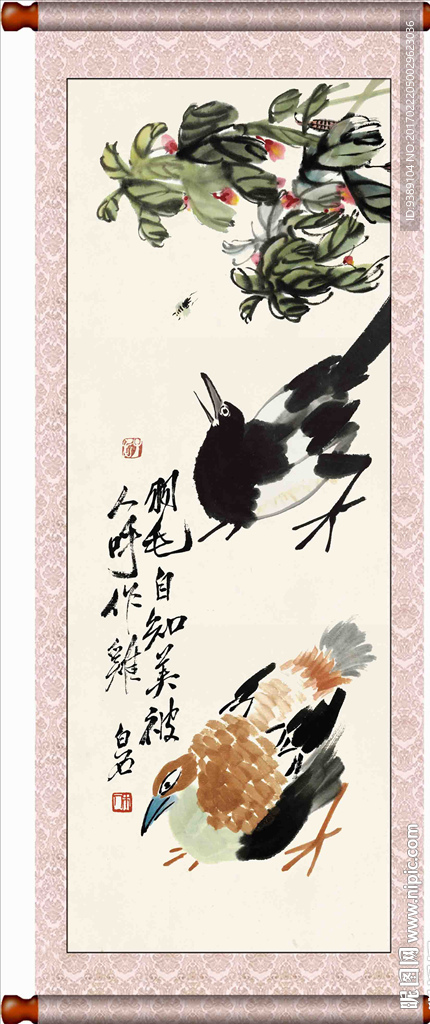 羽毛自知美被
人呼作雞
白石
ID:9389104 NO:20170222050029623036
昵图网 www.nipic.com